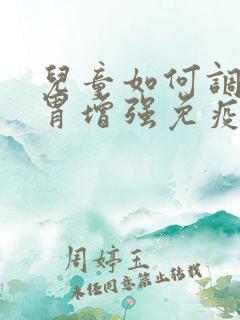 兒童如何調
胃增强免疫
周婷玉
未经同意禁止转载